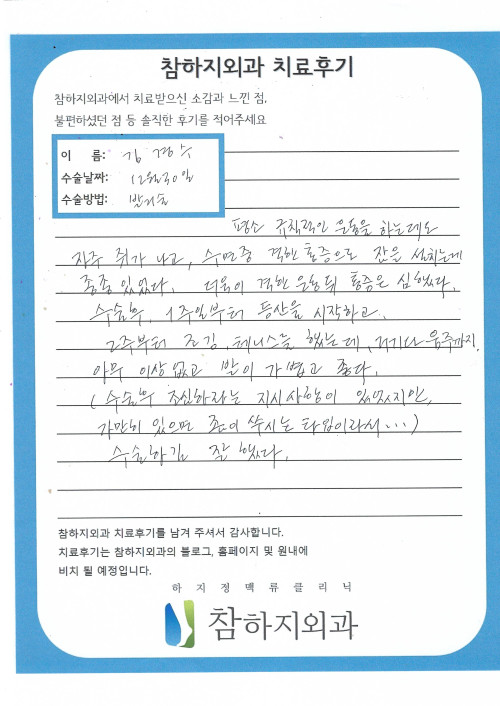 참하지외과 치료후기
참하지외과에서 치료받으신 소감과 느낀 점,
불편하셨던 점 등 솔직한 후기를 적어주세요
이 름: 김 경수
수술날짜: 12월30일
수술방법: 발거술
평소 규칙적인 운동을 하는데도
자주 쥐가 나고, 수면중 격한 통증으로 잠을 설치는게
종종 있었다. 더욱이 격한 운동뒤 통증은 심했다.
수술후, 1주일부터 등산을 시작하고.
2주부터 조깅, 테니스를 했는데, 거기다 음주까지.
아무 이상없고 발이 가볍고 좋다.
(수술후 조심하라는 지시사항이 있었지만,
가만히 있으면 좀이 쑤시는 타입이라서...)
수술하길 잘 했다.
참하지외과 치료후기를 남겨 주셔서 감사합니다.
치료후기는 참하지외과의 블로그, 홈페이지 및 원내에
비치 될 예정입니다.
하지정맥류클리닉
참하지외과